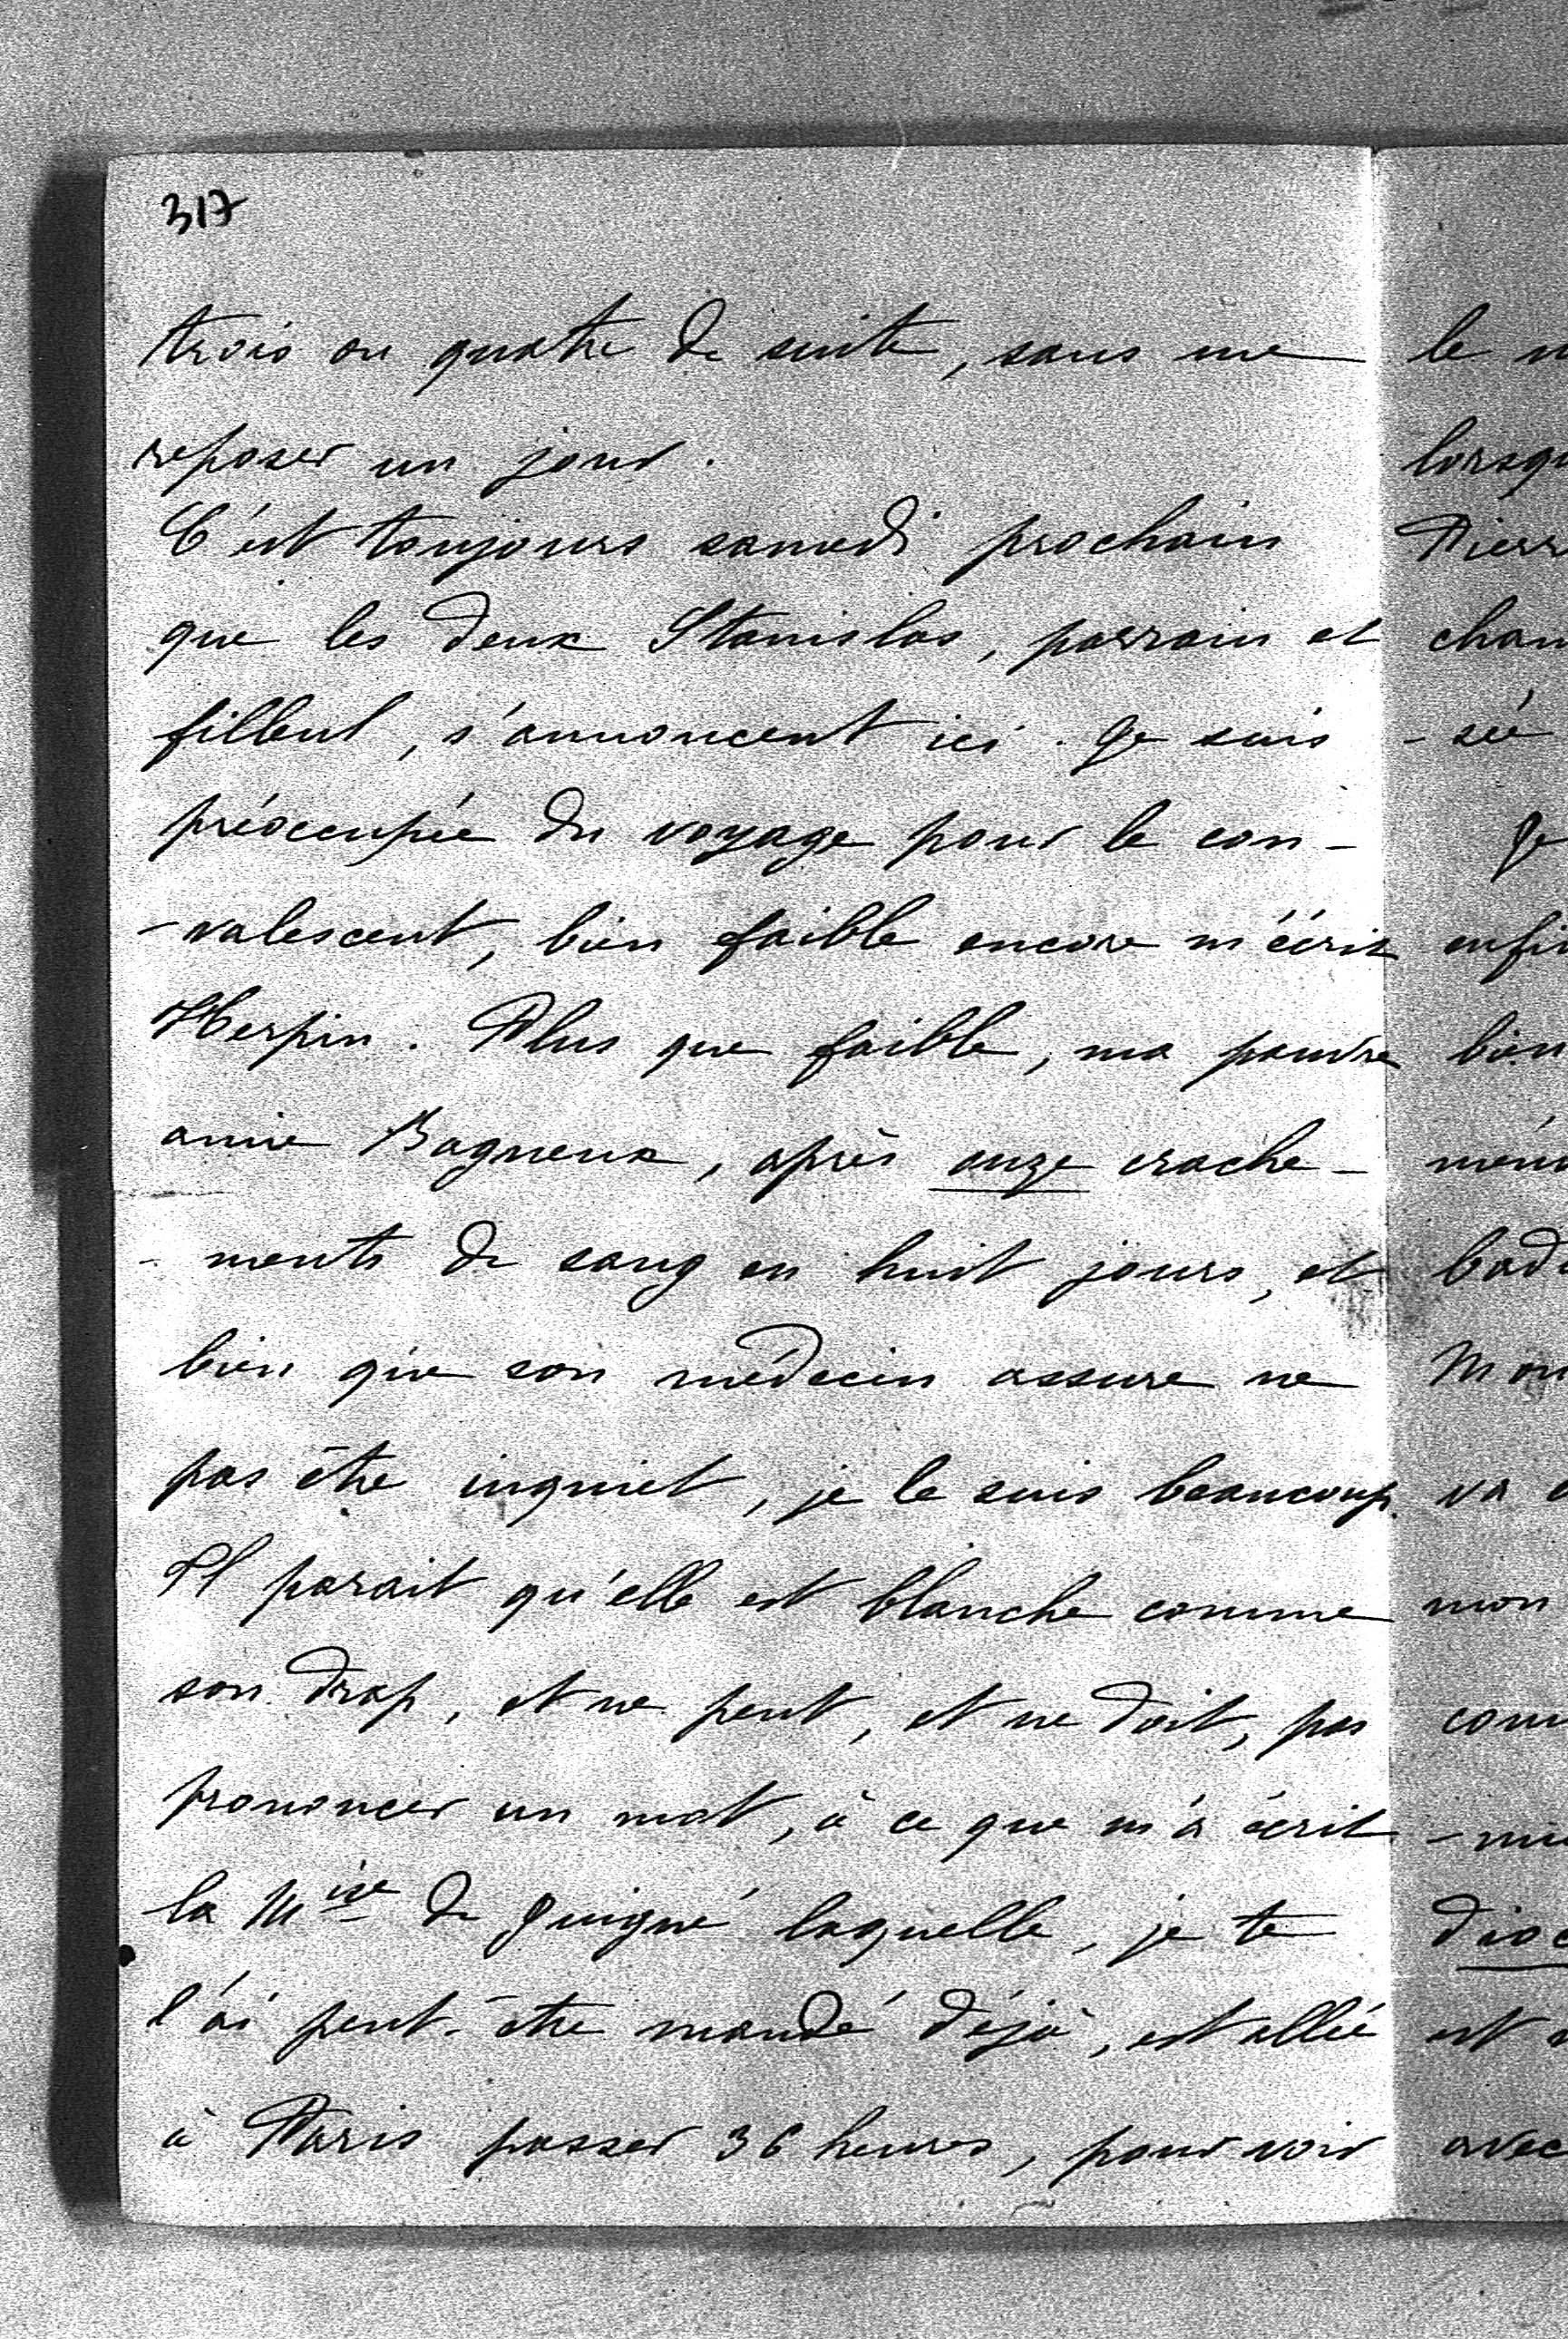 317
trois ou quatre de suite, sans me
reposer un jour.
C'est toujours samedi prochain
que les deux Stanislas, parrain et
filleul, s'annoncent ici. Je suis
préoccupée du voyage pour le con-
-valescent, bien faible encore m'écrit
Herpin. Plus que faible, ma pauvre
amie Bagneux, après onze crache-
-ments de sang en huit jours, et
bien que son médecin assure ne
pas être inquiet, je le suis beaucoup.
Il parait qu'elle est blanche comme
son drap, et ne peut, et ne doit, pas
prononcer un mot, à ce que m'a écrit
la Mise de Guigné laquelle, je te
l'ai peut-être mandé déjà, est allée
à Paris passer 36 heures, pour voir
le
lorsqu
Pierr
chan
-sée
Je
enfin
bien
bad
Mon
va
mon
com
dioc
est
avec